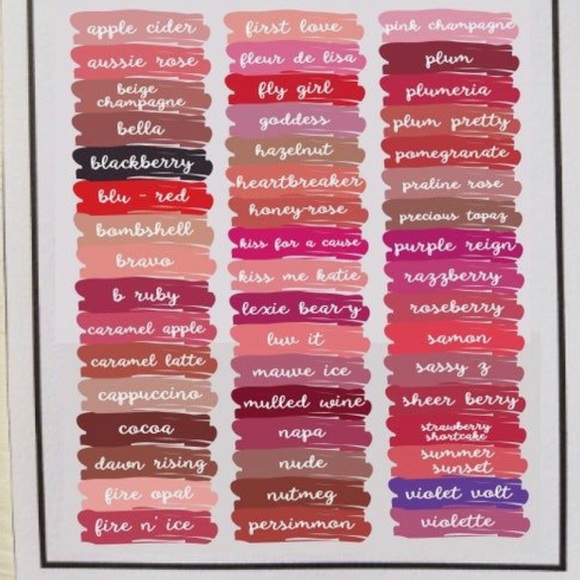 apple cider
aussie rose
beige
champagne
bella
blackberry
blu - red
bombshell
bravo
b ruby
caramel apple
caramel latte
cappuccino
cocoa
dawn rising
fire opal
fire n' ice
first love
fleur de lisa
fly girl
goddess
hazelnut
heartbreaker
honey-rose
kiss for a cause
kiss me katie
lexie bear-y
luv it
mauve ice
mulled wine
napa
nude
nutmeg
persimmon
pink champagne
plum
plumeria
plum pretty
pomegranate
praline rose
precious topaz
purple reign
razzberry
roseberry
samon
sassy z
sheer berry
strawberry
shortcake
summer
sunset
violet volt
violette